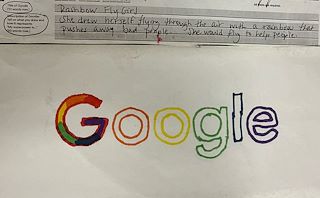 Rainbow Fly Girl
She drew herself flying through the air with a rainbow that
pushes away bad people. She would fly to help people.
Google